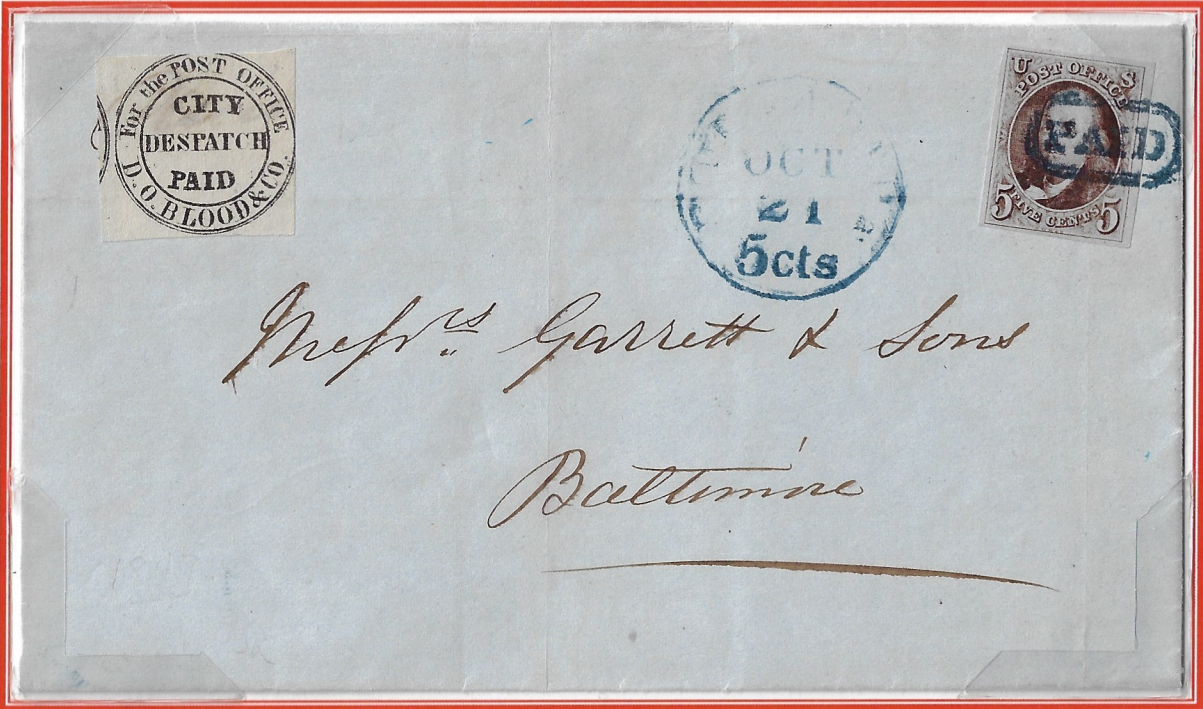 For the POST OFFICE
CITY
DESPATCH
PAID
D.O. BLOOD & CO.
OCT
21
5cts
U S
POST OFFICE
PAID
FIVE CENTS
5 5
Messrs Garrett & Sons
Baltimore